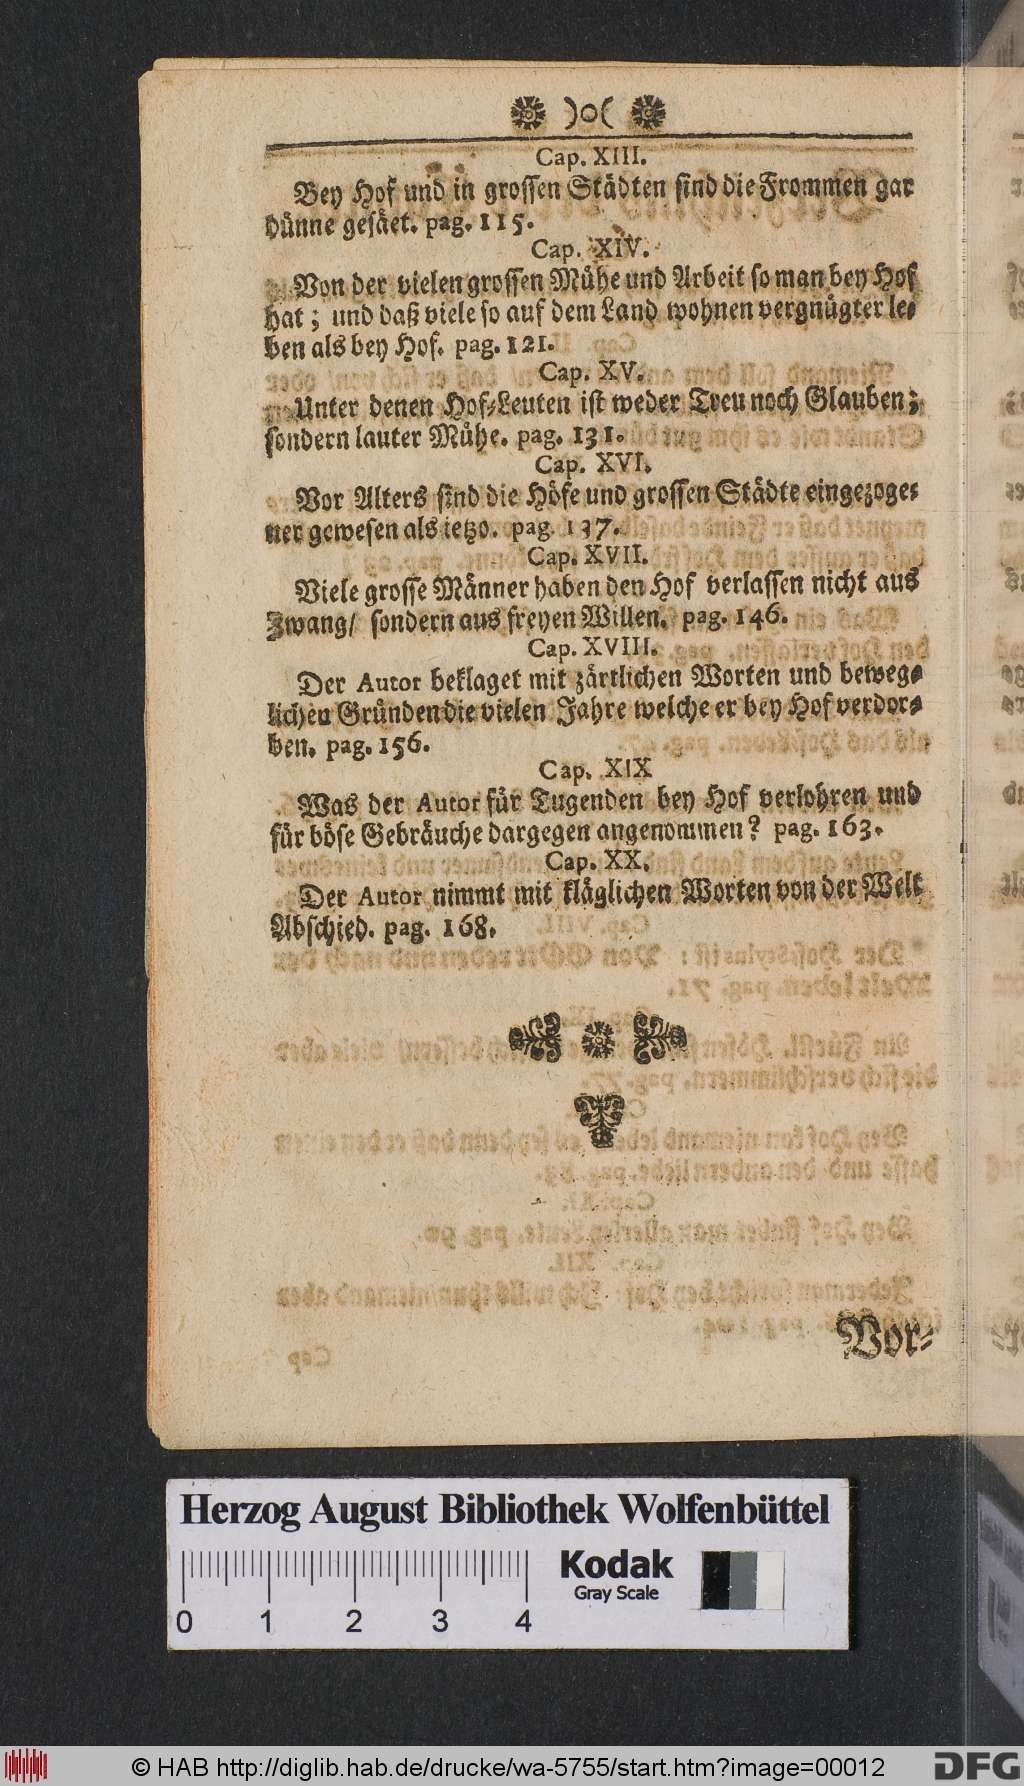 )o(
Cap. XIII.
Bey Hof und in grossen Städten sind die Frommen gar
dünne gesäet. pag. 115.
Cap. XIV.
Von der vielen grossen Mühe und Arbeit so man bey Hof
hat; und daß viele so auf dem Land wohnen vergnügter le-
ben als bey Hof. pag. 121.
Cap. XV.
Unter denen Hof-Leuten ist weder Treu noch Glauben;
sondern lauter Mühe. pag. 131.
Cap. XVI.
Vor Alters sind die Höfe und grossen Städte eingezoge-
ner gewesen als ietzo. pag. 137.
Cap. XVII.
Viele grosse Männer haben den Hof verlassen nicht aus
Zwang/ sondern aus freyen Willen. pag. 146.
Cap. XVIII.
Der Autor beklaget mit zärtlichen Worten und beweg-
lichen Gründen die vielen Jahre welche er bey Hof verdor-
ben. pag. 156.
Cap. XIX
Was der Autor für Tugenden bey Hof verlohren und
für böse Gebräuche dargegen angenommen? pag. 163.
Cap. XX.
Der Autor nimmt mit kläglichen Worten von der Welt
Abschied. pag. 168.
Vor-
Herzog August Bibliothek Wolfenbüttel
Kodak
Gray Scale
0 1 2 3 4
© HAB http://diglib.hab.de/drucke/wa-5755/start.htm?image=00012
DFG